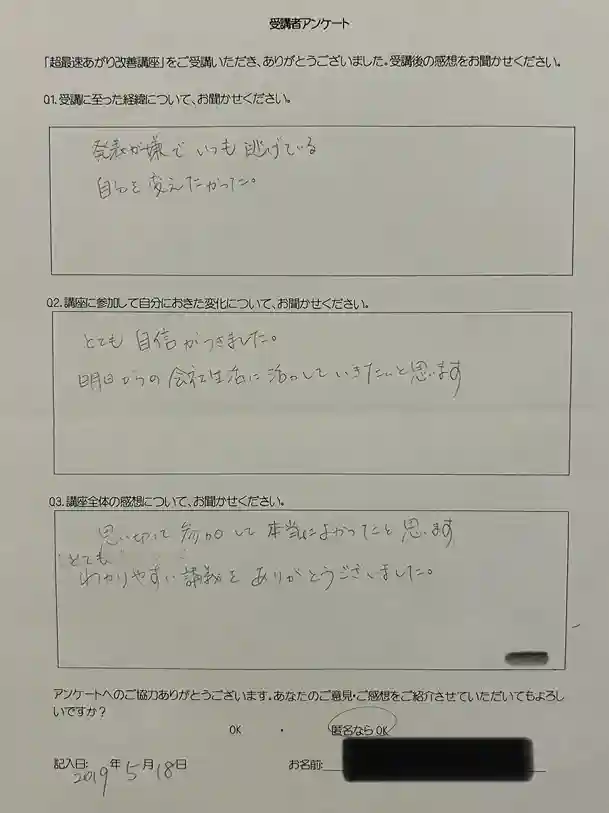 受講者アンケート
「超最速あがり改善講座」をご受講いただき、ありがとうございました。受講後の感想をお聞かせください。
Q1.受講に至った経緯について、お聞かせください。
発表が嫌で いつも 逃げている
自分を変えたかった。
Q2.講座に参加して自分におきた変化について、お聞かせください。
とても 自信がつきました。
明日からの会社生活に活かしていきたいと思います
Q3.講座全体の感想について、お聞かせください。
思い切って参加して本当によかったと思います
とても
わかりやすい講義をありがとうございました。
アンケートへのご協力ありがとうございます。あなたのご意見・ご感想をご紹介させていただいてもよろし
いですか?
OK ・ 匿名ならOK
記入日: 2019年5月18日 お名前: